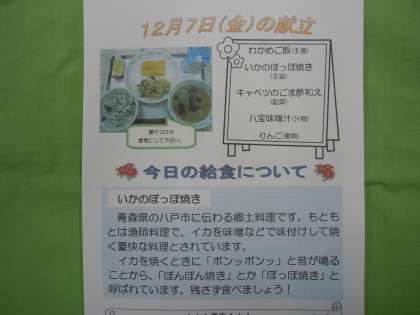 12月7日(金)の献立
わかめご飯(主食)
いかのぽっぽ焼き
(主菜)
キャベツのごま酢和え
(副菜)
八宝味噌汁(汁物)
りんご(果物)
盛りつけの
参考にして下さい。
今日の給食について
いかのぽっぽ焼き
青森県の八戸市に伝わる郷土料理です。もとも
とは漁師料理で、イカを味噌などで味付けして焼
く豪快な料理とされています。
イカを焼くときに「ポンッポンッ」と音が鳴る
ことから、「ぽんぽん焼き」とか「ぽっぽ焼き」と
呼ばれています。残さず食べましょう！